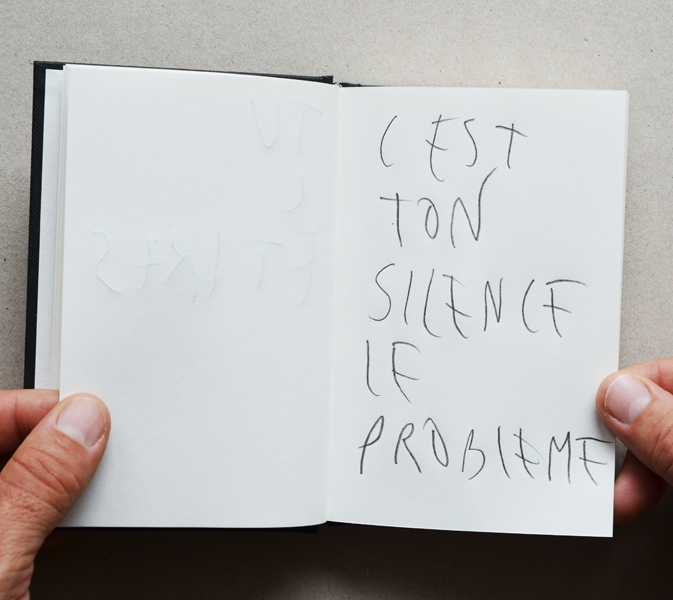 C'EST
TON
SILENCE
LE
PROBLEME